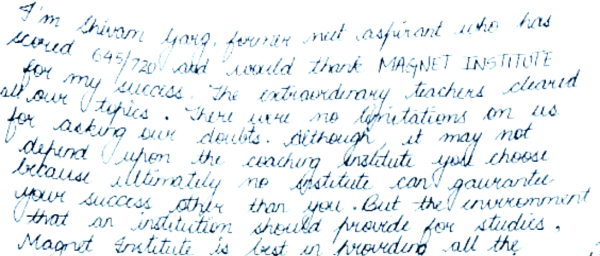 I'm Shivam Garg, former neet aspirant who has
scored 645/720 and would thank MAGNET INSTITUTE
for my success. The extraordinary teachers cleared
all our topics. There were no limitations on us
for asking our doubts. Although, it may not
depend upon the coaching institute you choose
because ultimately no institute can gaurantee
your success other than you. But the environment
that an institution should provide for studies,
Magnet Institute is best in providing all the